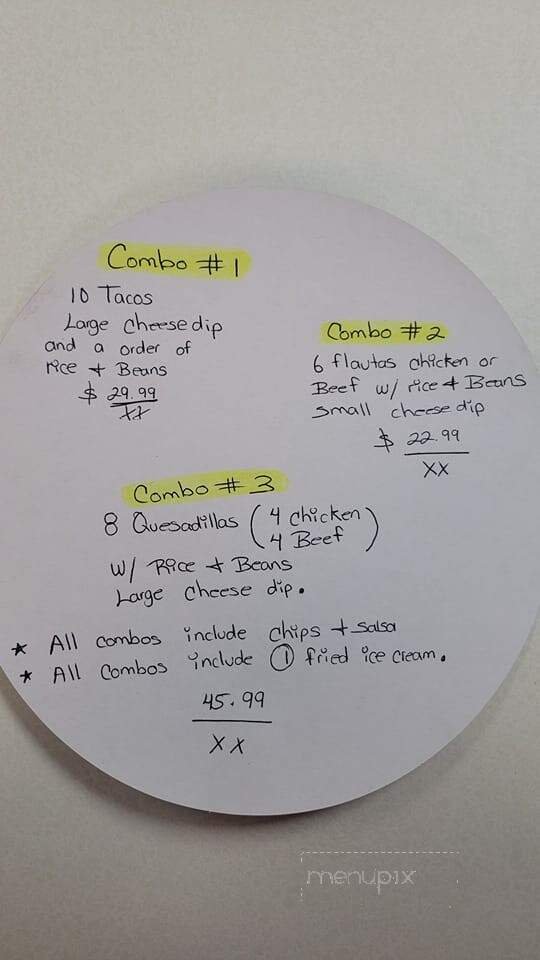 Combo #1
10 Tacos
Large cheese dip
and a order of
rice + Beans
$ 29.99
XX
Combo #2
6 flautas chicken or
Beef w/ rice + Beans
small cheese dip
$ 22.99
XX
Combo #3
8 Quesadillas (4 chicken
4 Beef)
w/ Rice + Beans
Large cheese dip.
* All combos include chips + salsa
* All combos include ① fried ice cream.
45.99
XX
menupix